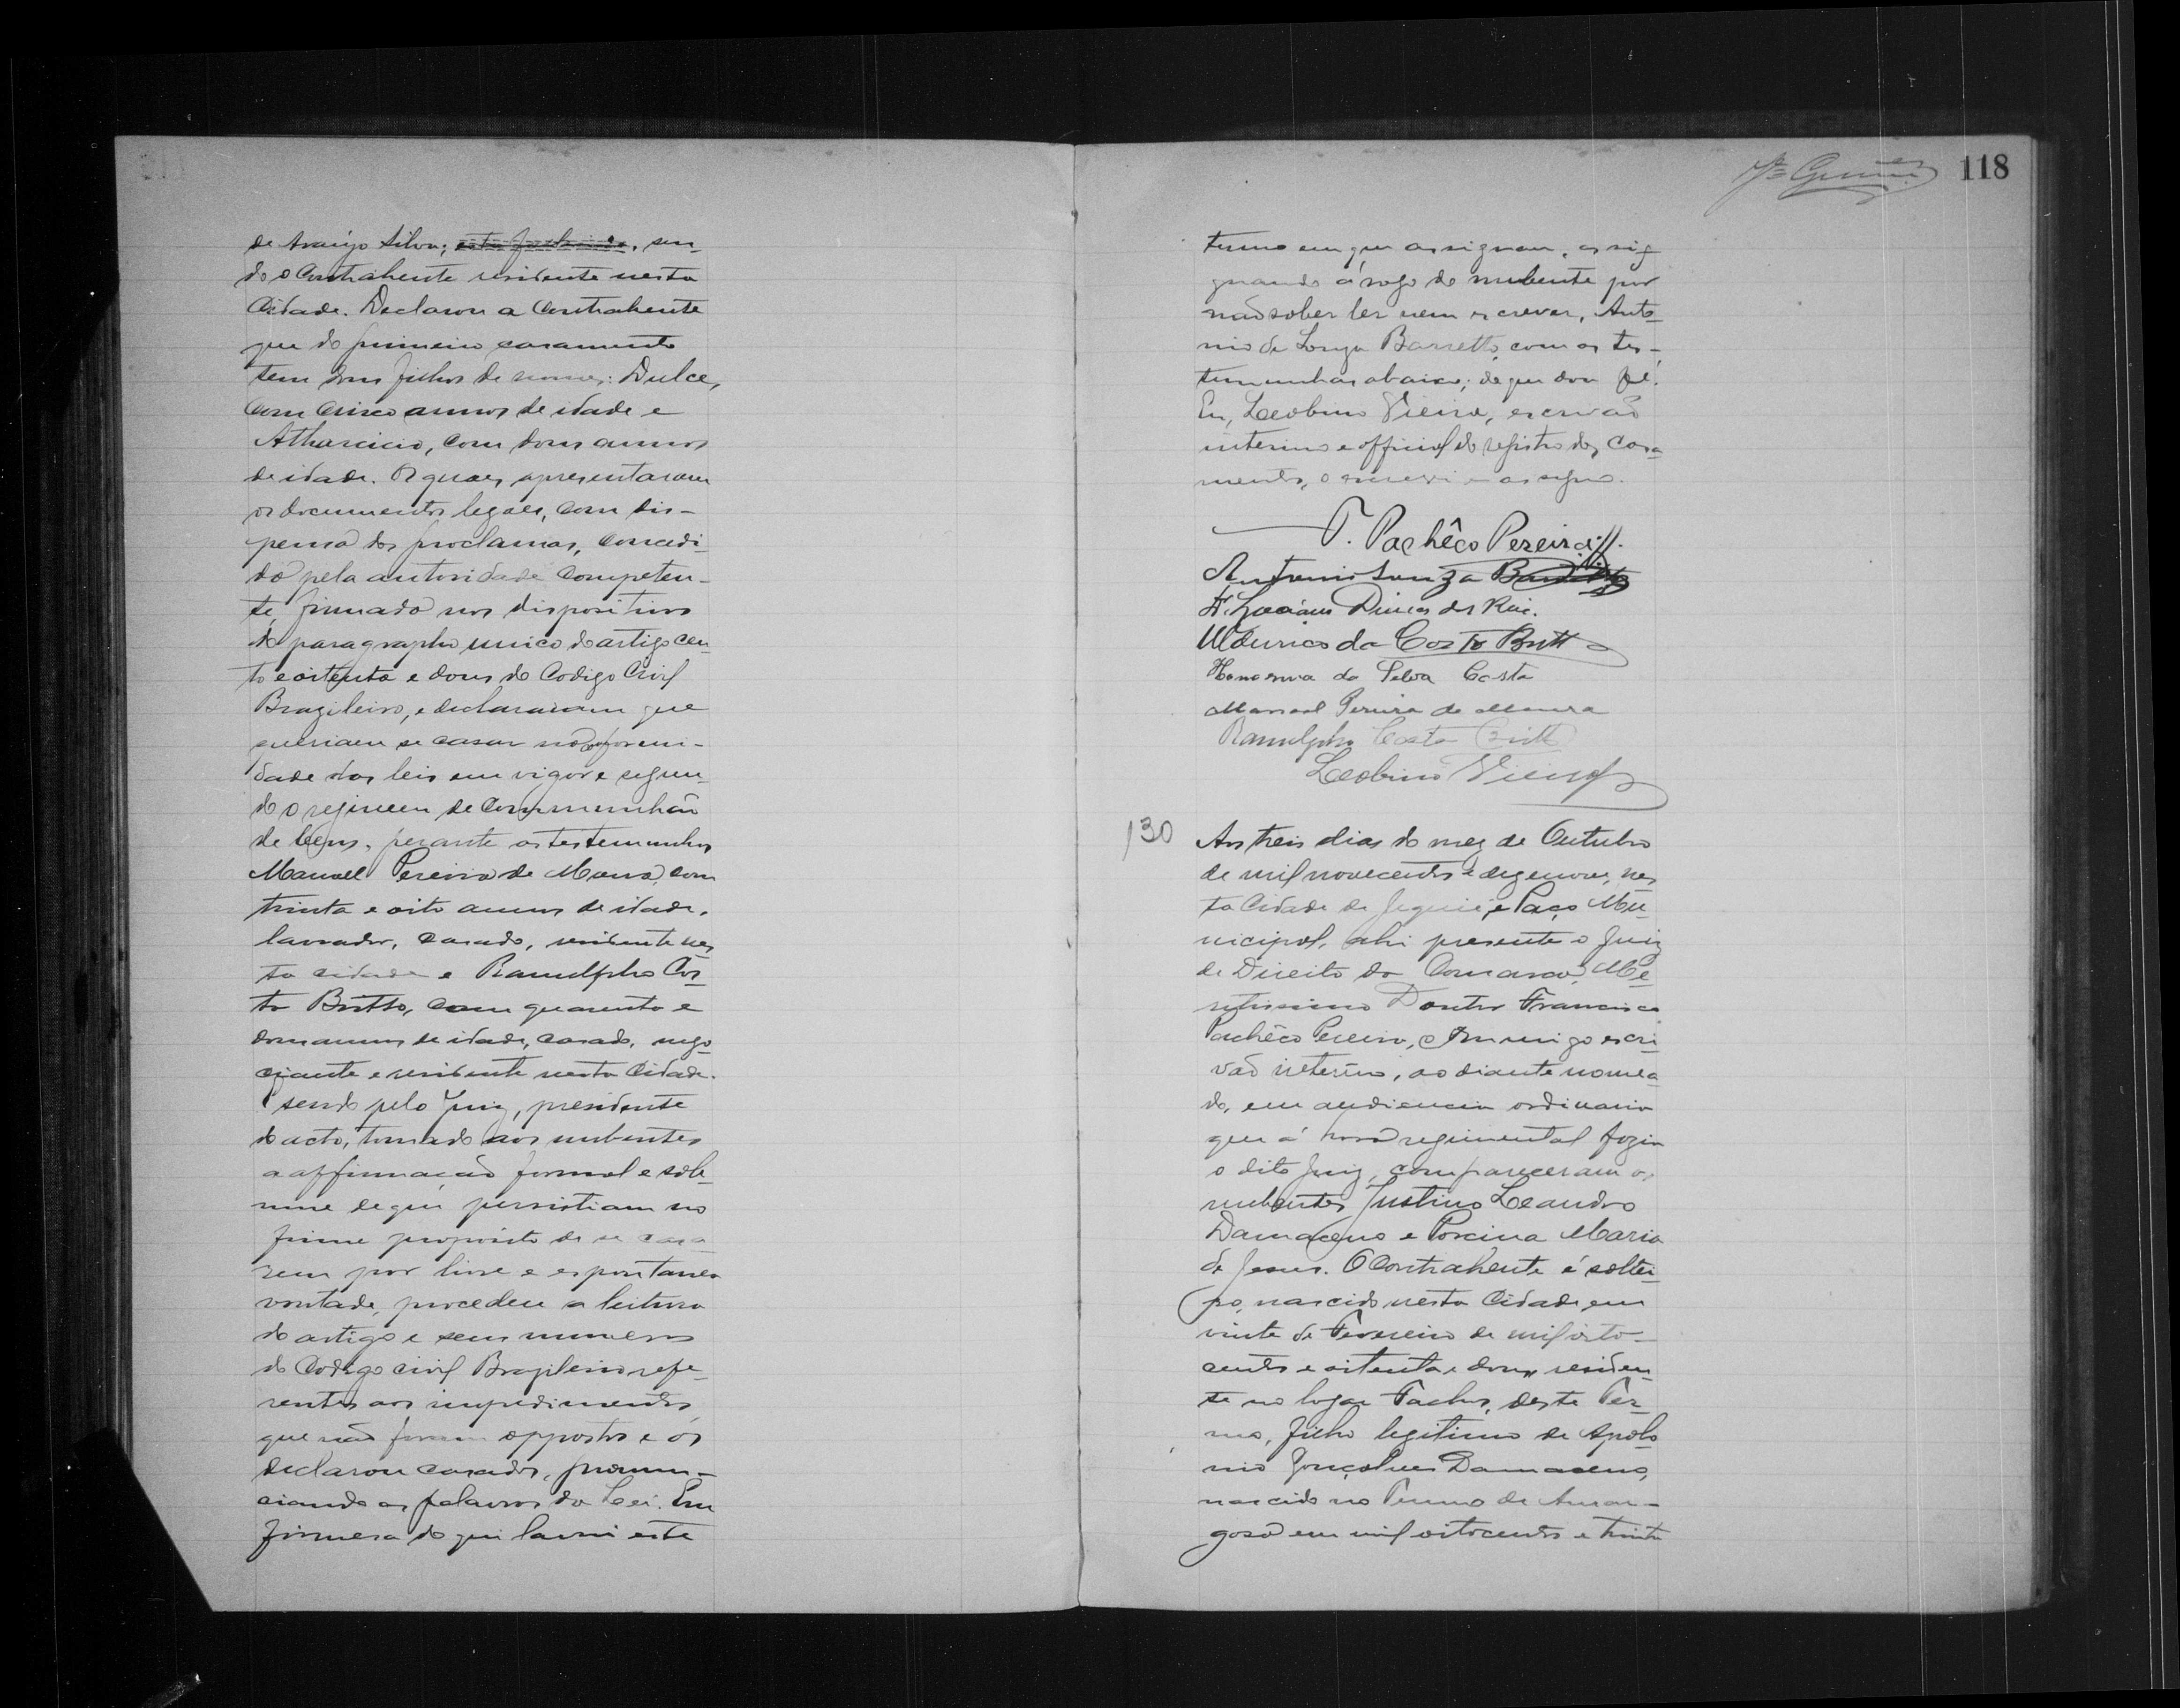 de Araújo Silva; sen-
do o Contrahente residente nesta
Cidade. Declarou a Contrahente
que do primeiro casamento
tem dous filhos de nomes: Dulce,
com cinco annos de idade e
com dous annos
de idade. Os quaes apresentaram
os documentos legaes, com dis-
pensa dos proclamas, concedi-
da pela autoridade competen-
te, firmado nos dispositivos
do paragrapho unico do artigo cen-
to e oitenta e dous do Codigo Civil
Brazileiro, e declararam que
queriam se casar na conformi-
dade das leis em vigor e segun-
do o regimen de Communhão
de bens, perante as testemunhas
Manoel Pereira de Moura, com
trinta e oito annos de idade,
lavrador, casado, residente nes-
ta cidade e Ranulpho Cos-
ta Britto, com quarenta e
dous annos de idade, casado, nego-
ciante e residente nesta Cidade.
E sendo pelo Juiz, presidente
do acto, tomado aos nubentes
a affirmação formal e sole-
mne de que persistiam no
firme proposito de se casa-
rem por livre e espontanea
vontade, procedeu a leitura
do artigo e seus numeros
do Codigo civil Brazileiro refe-
rentes aos impedimentos,
que não foram oppostos e os
declarou casados, pronun-
ciando as palavras da Lei. Em
firmesa do que lavrei este
118
termo em que assignam, assig-
gnando á rogo do nubente por
não saber ler nem escrever, Anto-
nio de Souza Barretto, com as tes-
temunhas abaixo; de que dou fé.
Eu, Leobino Vieira, escrivão
interino e official do registro dos casa-
mentos, o escrevi e assigno.
F. Pachêco Pereira
Antonio Souza Barretto
Dures dos Reis.
Maurico da Costa Britto
da Silva Costa
Manoel Pereira de Moura
Ranulpho Costa Britto
Leobino Vieira
130 Aos treis dias do mez de Outubro
de mil novecentos e dezenove, nes-
ta Cidade de Jequié, e Paço Mu-
nicipal, ahi presente o Juiz
de Direito da Comarca, Me-
retissimo Doutor Francisco
Pachêco Pereira, commigo escri-
vão interino, ao diante nomea-
do, em audiencia ordinaria
que á hora regimental fazia
o dito Juiz, compareceram os
nubentes Justino Leandro
Damaceno e Porcina Maria
de Jesus. O Contrahente é soltei-
ro, nascido nesta Cidade em
vinte de Fevereiro de mil oito-
centos e oitenta e dous, residen-
te no logar deste Ter-
mo, filho legitimo de Apolo-
nio Gonçalves Damaceno,
nascido no Termo de Amar-
gosa em mil oitocentos e trinta